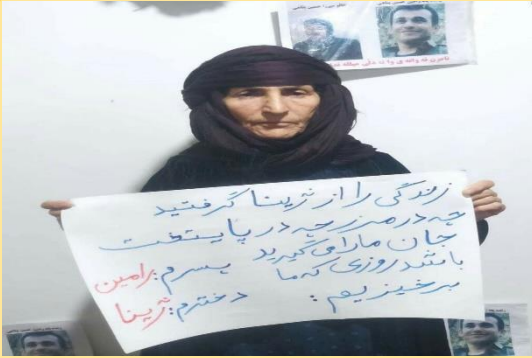 زندگی را از ژینا گرفتید
چه در مرز چه در پایتخت
جان ما را می گیرید
باشد روزی که ما پسرم: رامین
برخیزیم: دخترم: ژینا